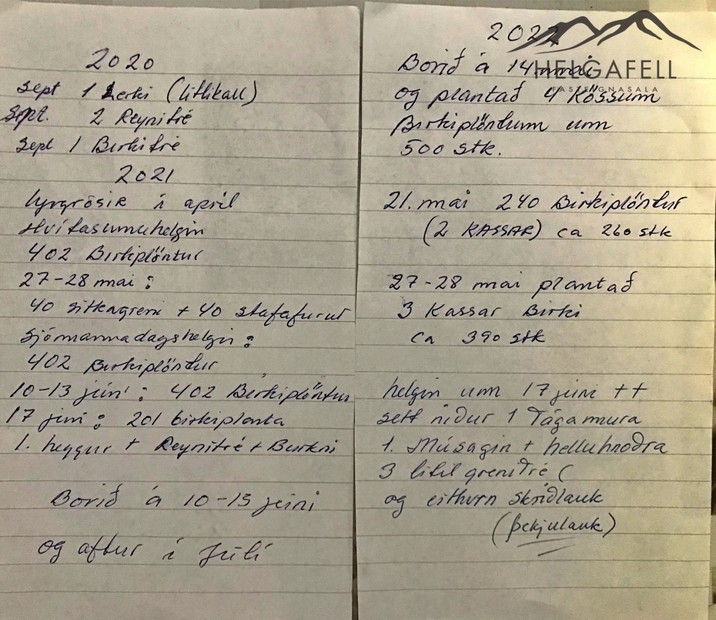 2020
Sept 1 Lerki (litlikall)
Sept. 2 Reynitré
Sept 1 Birkitré
2021
Lyngrósir í apríl
Hvítasunnuhelgin
402 Birkiplöntur
27-28 mai :
40 sitkagreni + 40 stafafurur
Sjómannadagshelgin :
402 Birkiplöntur
10-13 júní : 402 Birkiplöntur
17 júní : 201 birkiplanta
1. heggur + Reynitré + Burkni
Borið á 10-15 júní
og aftur í Júlí
2022
HELGAFELL
FASTEIGNASALA
Borið á 14 mai
og plantað 4 Kössum
Birkiplöntum um
500 stk.
21. mai 240 Birkiplöntur
(2 KASSAR) ca 260 stk
27-28 mai plantað
3 Kassar Birki
ca 390 stk
helgin um 17 júni ++
sett niður 1 Tágamura
1. Músagin + helluhnoðra
3 lítil grenitré (
og eithvn skriðlauk
(Þekjulauk)